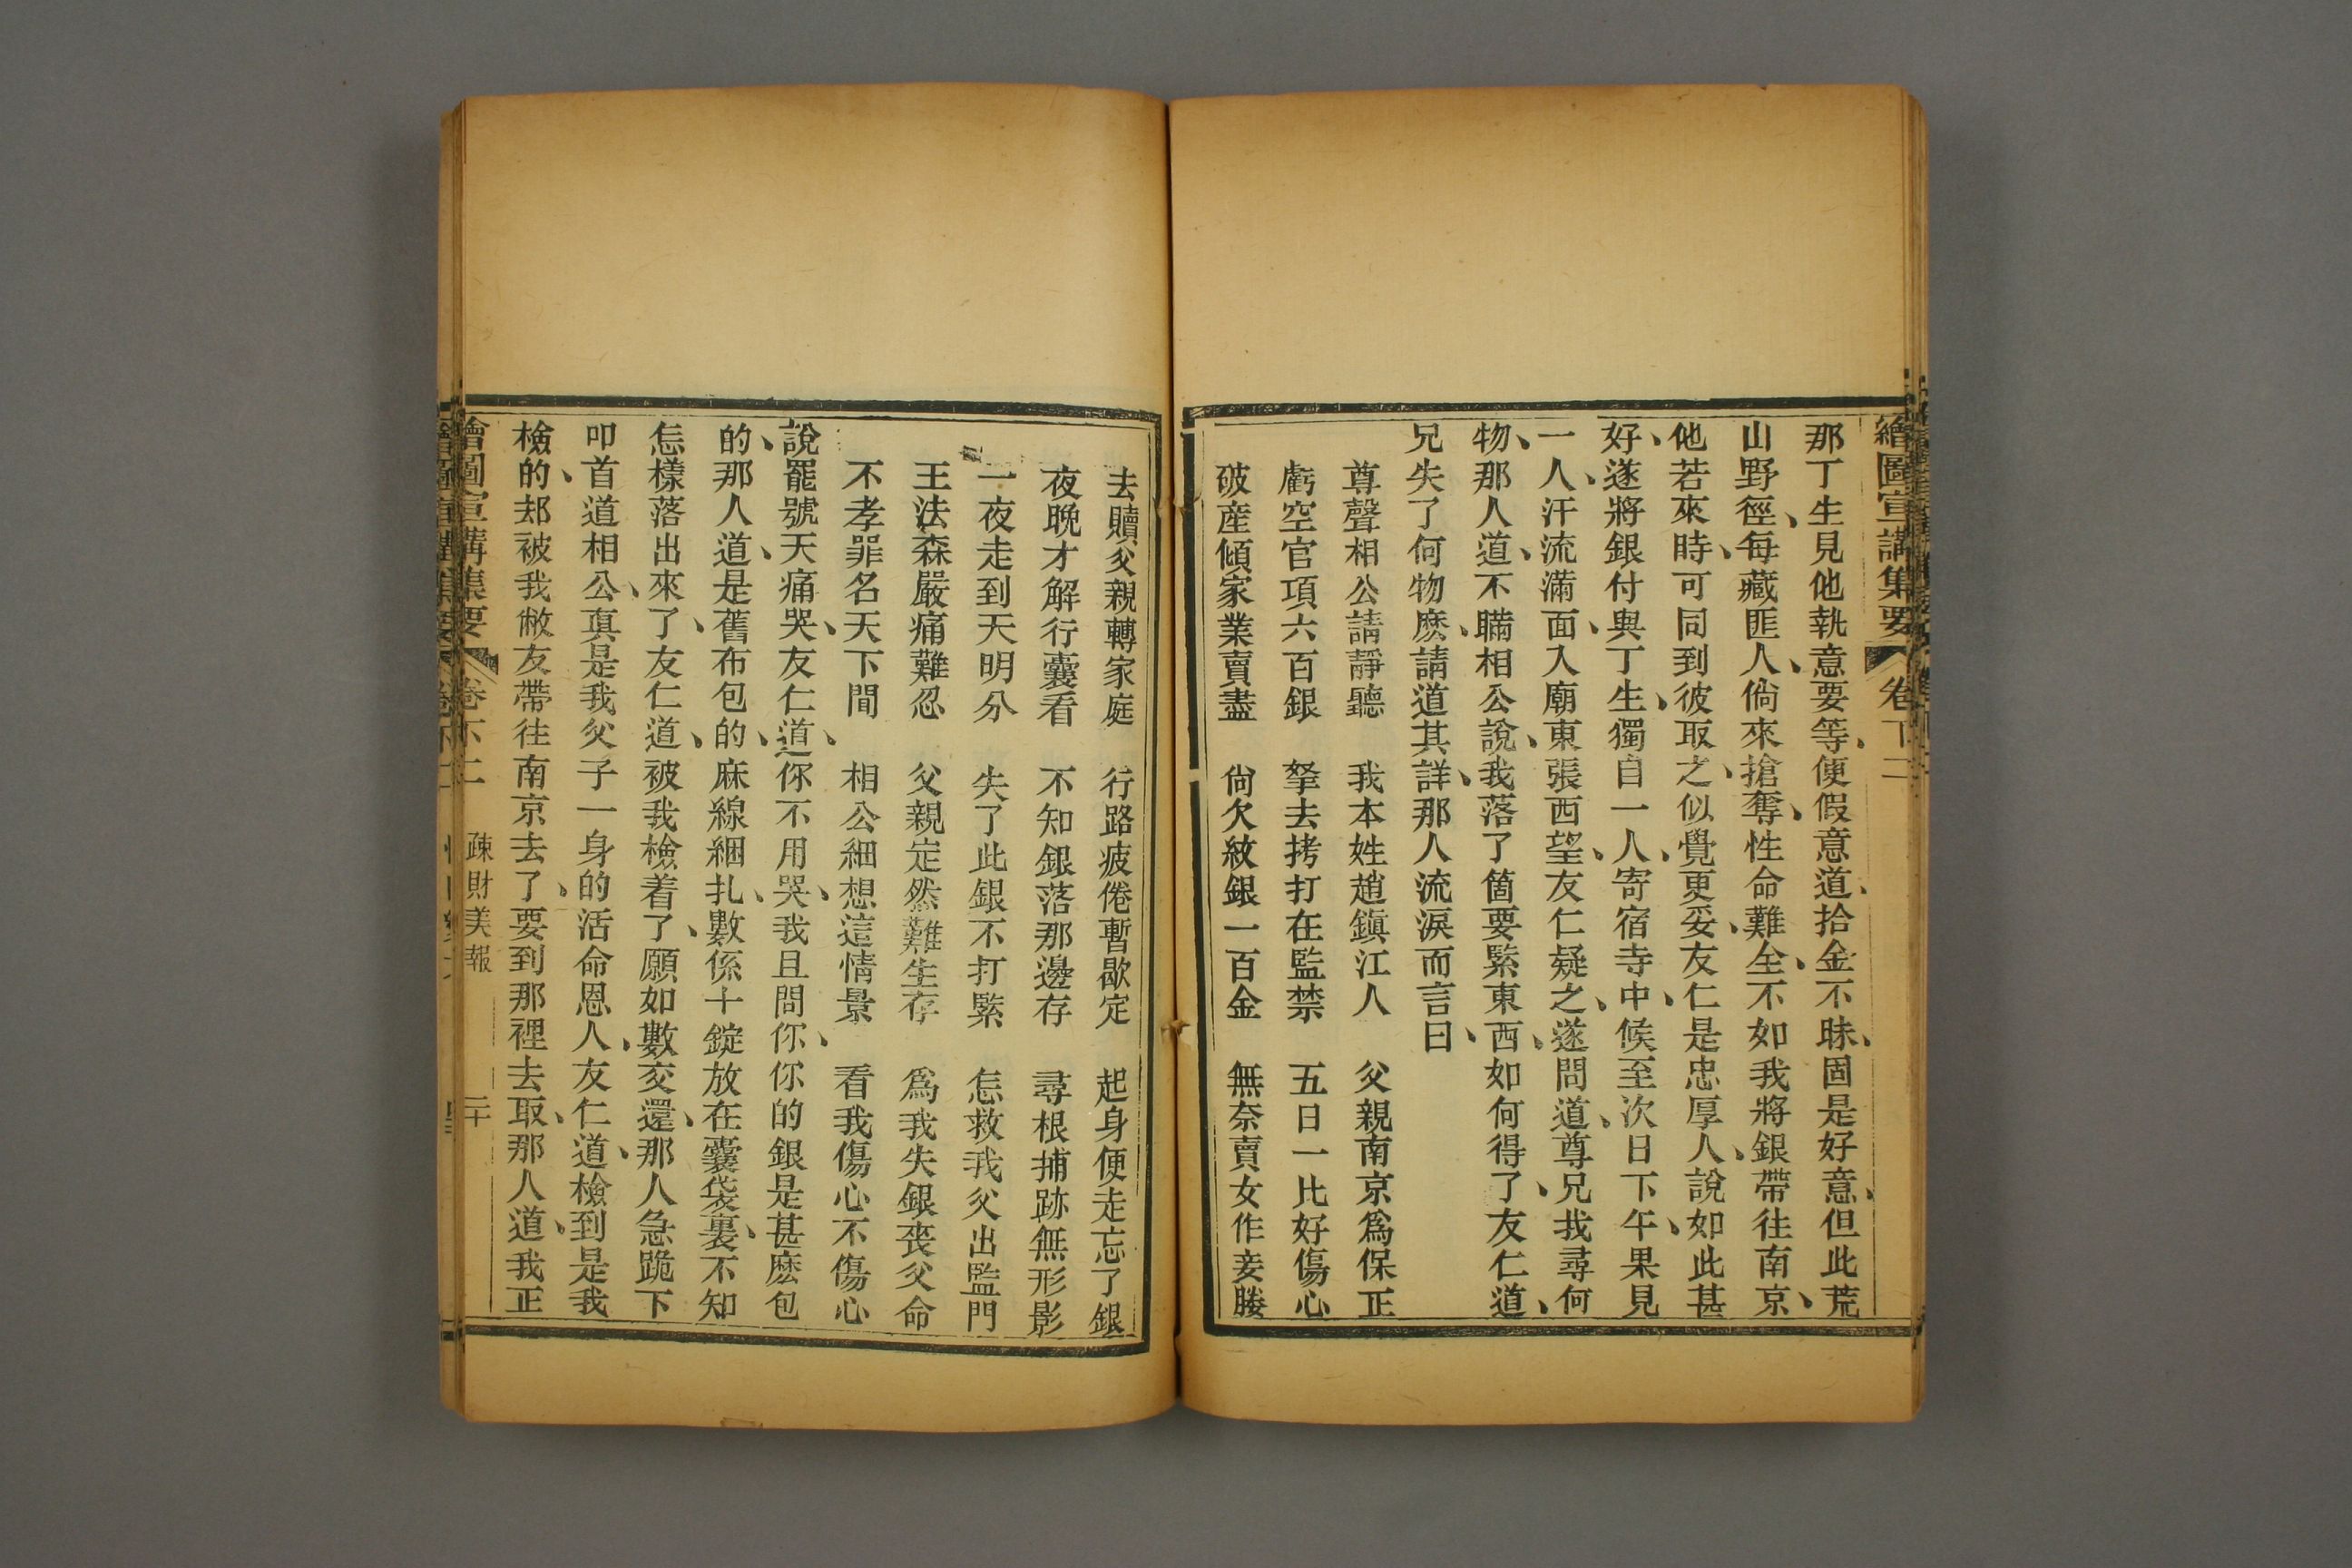 繪圖宣講集要 卷下二
那丁生見他執意要等、便假意道、拾金不昧、固是好意、但此荒
山野徑、每藏匪人、倘來搶奪、性命難全、不如我將銀帶往南京、
他若來時、可同到彼取之、似覺更妥、友仁是忠厚人、說如此甚
好、遂將銀付與丁生、獨自一人、寄宿寺中、候至次日下午、果見
一人、汗流滿面、入廟東張西望、友仁疑之、遂問道、尊兄我尋何
物、那人道、不瞞相公說、我落了箇要緊東西、如何得了、友仁道、
兄失了何物麽、請道其詳、那人流淚而言曰、
尊聲相公請靜聽 我本姓趙鎮江人 父親南京爲保正
虧空官項六百銀 拏去拷打在監禁 五日一比好傷心
破產傾家業賣盡 尙欠紋銀一百金 無奈賣女作妾媵
去贖父親轉家庭 行路疲倦暫歇定 起身便走忘了銀
夜晚才解行囊看 不知銀落那邊存 尋根捕跡無形影
一夜走到天明分 失了此銀不打緊 怎救我父出監門
王法森嚴痛難忍 父親定然難生存 爲我失銀喪父命
不孝罪名天下間 相公細想這情景 看我傷心不傷心
說罷號天痛哭、友仁道、你不用哭、我且問你、你的銀是甚麽包
的、那人道、是舊布包的、麻線綑扎、數係十錠放在囊袋裏、不知
怎樣落出來了、友仁道、被我檢着了、願如數交還、那人急跪下
叩首道相公、真是我父子一身的活命恩人、友仁道、檢到是我
檢的、却被我敝友帶往南京去了、要到那裡去取、那人道、我正
會圖宣講集要 卷下二 疎財美報 二十